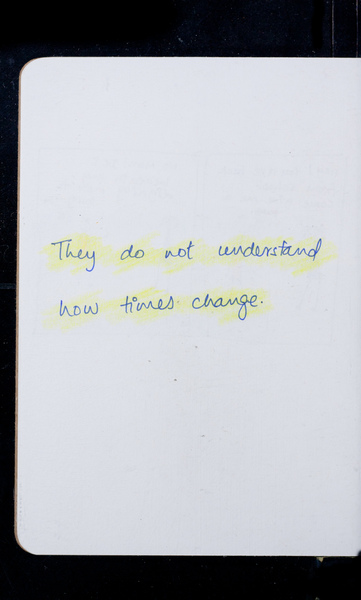 They do not understand
how times change.